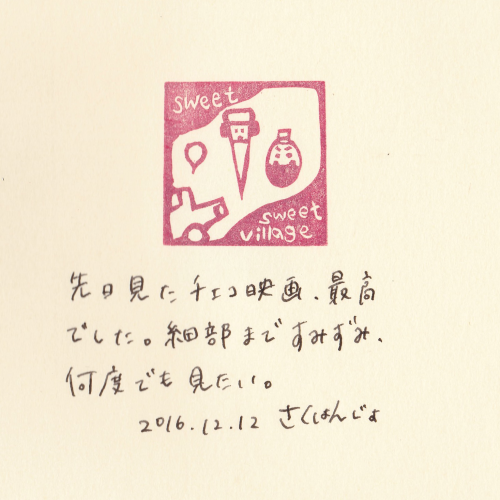 sweet
sweet
village
先日見たチェコ映画、最高
でした。細部まですみずみ、
何度でも見たい。
2016.12.12 さくはんじょ